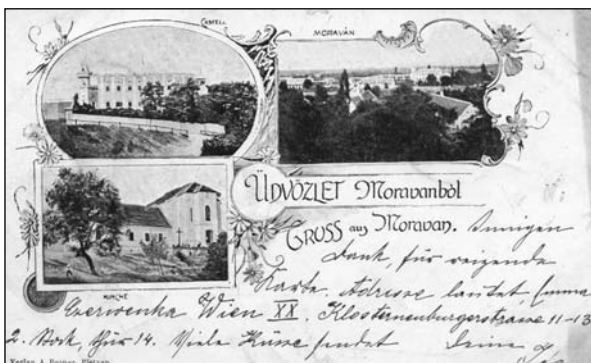 CASTELL
MORAVÁN
ÜDVÖZLET Moravanból
GRUSS aus Moravan.
Innigen
Dank, für reizende
Karte. Adresse lautet, Emma
KIRCHE
Czerwenka Wien XX. Klosterneuburgerstrasse 11-13
2. Stock, Thür 14. Viele Küsse sendet Deine
Verlag A. Bernas, Pistyan